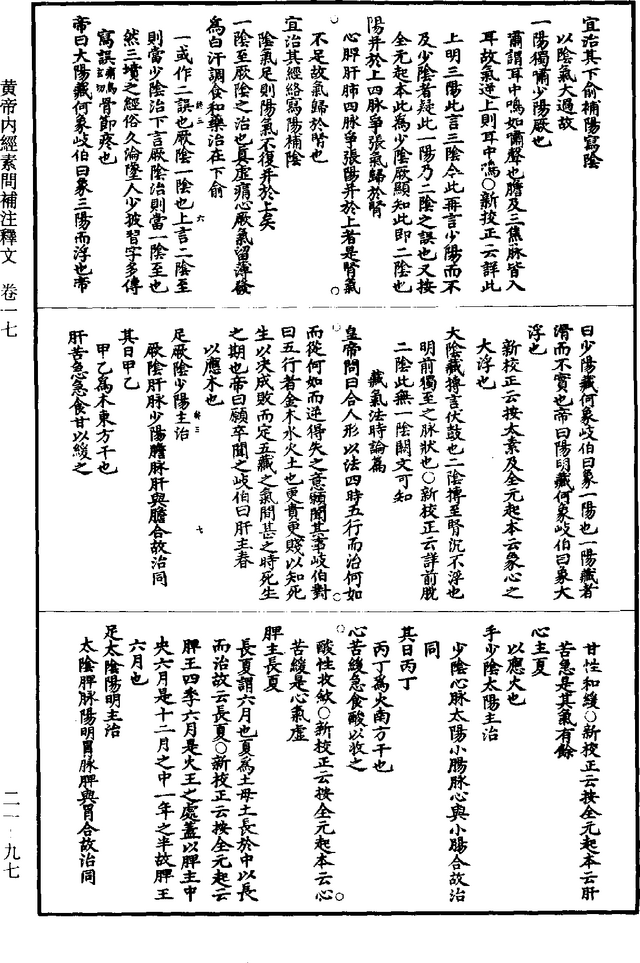 宜治其下俞補陽寫陰
以陰氣大過故
一陽獨嘯少陽厥也
嘯謂耳中鳴如嘯聲也膽及三焦脉皆入
耳故氣逆上則耳中鳴○新校正云詳此
上明三陽此言三陰今此再言少陽而不
及少陰者疑此一陽乃二陰之誤也又按
全元起本此為少陰厥顯知此即二陰也
陽并於上四脉爭張氣歸於腎
心脾肝肺四脉爭張陽并於上者是腎氣
不足故氣歸於腎也
宜治其經絡寫陽補陰
陰氣足則陽氣不復并於上矣
一陰至厥陰之治也真虛㾓心厥氣留薄發
為白汗調食和藥治在下俞
一或作二誤也厥陰一陰也上言二陰至
則當少陰治下言厥陰治則當一陰至也
然三墳之經俗久淪墜人少披習字多傳
寫誤 骨節疼也
帝曰大陽藏何象岐伯曰象三陽而浮也帝
曰少陽藏何象岐伯曰象一陽也一陽藏者
滑而不實也帝曰陽明藏何象岐伯曰象大
浮也
新校正云按太素及全元起本云象心之
大浮也
大陰藏搏言伏鼓也二陰搏至腎沉不浮也
明前獨至之脉狀也○新校正云詳前脫
二陰此無一陰闕文可知
藏氣法時論篇
皇帝問曰合人形以法四時五行而治何如
而從何如而逆得失之意願聞其事岐伯對
曰五行者金木水火土也更貴更賤以知死
生以決成敗而定五藏之氣間甚之時死生
之期也帝曰願卒聞之岐伯曰肝主春
以應木也
足厥陰少陽主治
厥陰肝脉少陽膽脉肝與膽合故治同
其日甲乙
甲乙為木東方干也
肝苦急急食甘以緩之
甘性和緩○新校正云按全元起本云肝
苦急是其氣有餘
心主夏
以應火也
手少陰太陽主治
少陰心脉太陽小腸脉心與小腸合故治
同
其日丙丁
丙丁為火南方干也
心苦緩急食酸以收之
酸性收斂○新校正云按全元起本云心
苦緩是心氣虛
脾主長夏
長夏謂六月也夏為土母土長於中以長
而治故云長夏○新校正云按全元起云
脾王四季六月是火王之處蓋以脾主中
央六月是十二月之中一年之半故脾王
六月也
足太陰陽明主治
太陰脾脉陽明胃脉脾與胃合故治同
黄帝内經素問補注釋文 卷一七
二一·九七